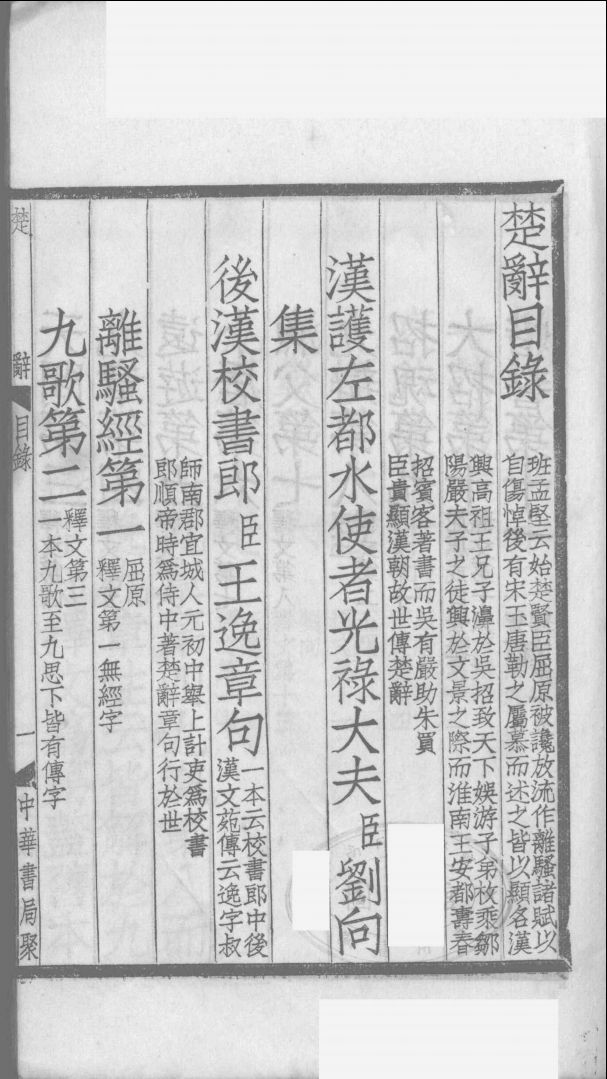 楚辭目錄
班孟堅云始楚賢臣屈原被讒放流作離騷諸賦以
自傷悼後有宋玉唐勒之屬慕而述之皆以顯名漢
興高祖王兄子濞於吳招致天下娛游子弟枚乘鄒
陽嚴夫子之徒興於文景之際而淮南王安都壽春
招賓客著書而吳有嚴助朱買
臣貴顯漢朝故世傳楚辭
漢護左都水使者光祿大夫臣劉向
集
後漢校書郎臣王逸章句
一本云校書郎中後
漢文苑傳云逸字叔
師南郡宜城人元初中舉上計吏為校書
郎順帝時為侍中著楚辭章句行於世
離騷經第一
屈原
釋文第一無經字
九歌第二
釋文第三
一本九歌至九思下皆有傳字
楚辭 目錄 一 中華書局聚